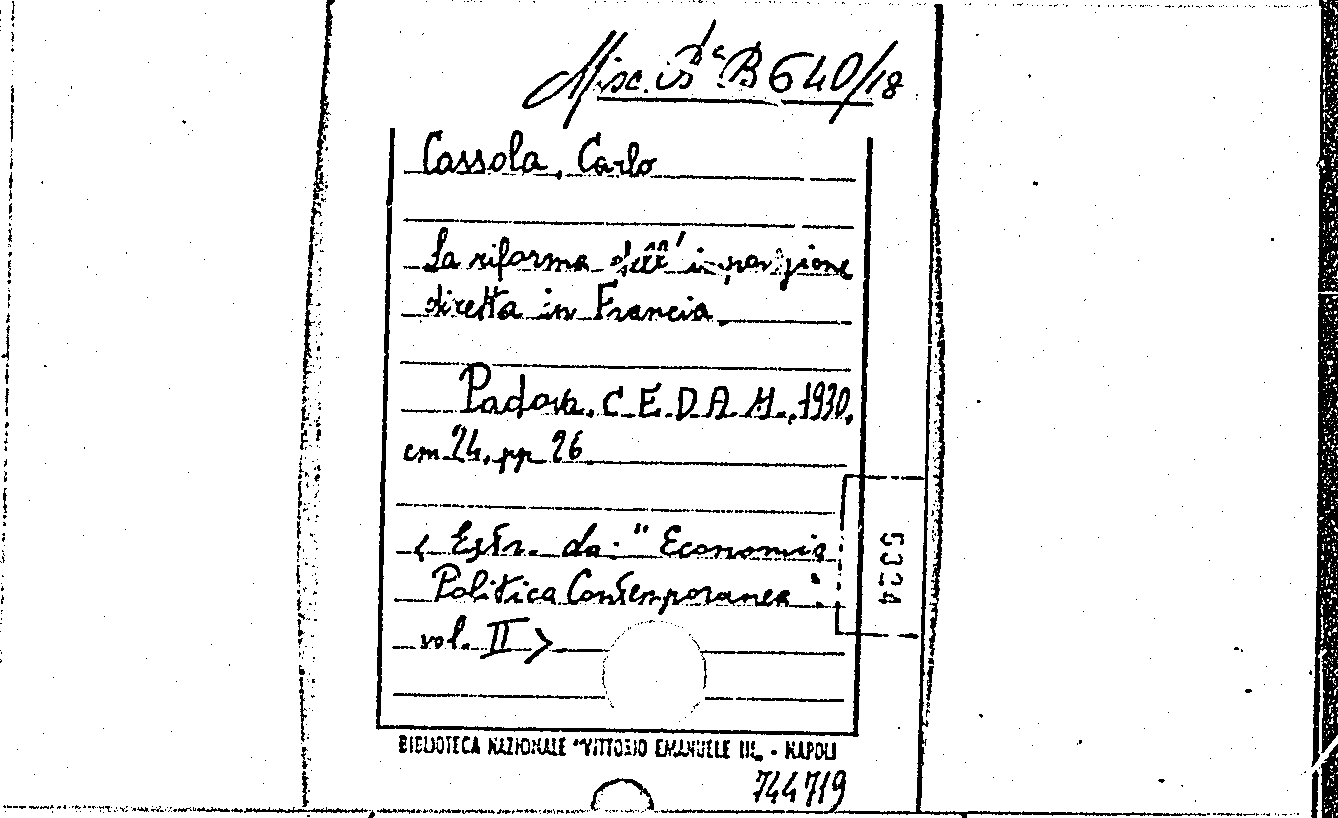 Misc. B 640/18
Cassola, Carlo
La riforma dell'imposizione
diretta in Francia.
Padova. C.E.D.A.M., 1930.
cm 24. pp 26
< Estr. da: "Economia
Politica Contemporanea".
vol. II >
5324
BIBLIOTECA NAZIONALE "VITTORIO EMANUELE III„ - NAPOLI
744719